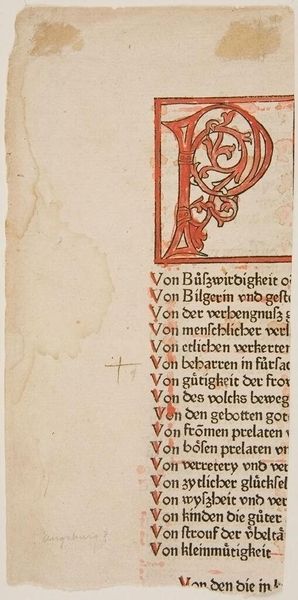 P
Von Bůszwirdigkeit o
Von Bilgerin vnd gest
Von der verhengnusz
Von menschlicher verl
Von etlichen verkerten
Von beharren in fúrsac
Von gútigkeit der frov
Von des volcks beweg
Von den gebotten got
Von frőmen prelaten v
Von bősen prelaten vn
Von verretery vnd ver
Von zytlicher glúcksel
Von wyszheit vnd ver
Von kinden die gůter
Von strouf der v̊beltä
Von kleinmútigkeit
Von den die in
Augsburg?